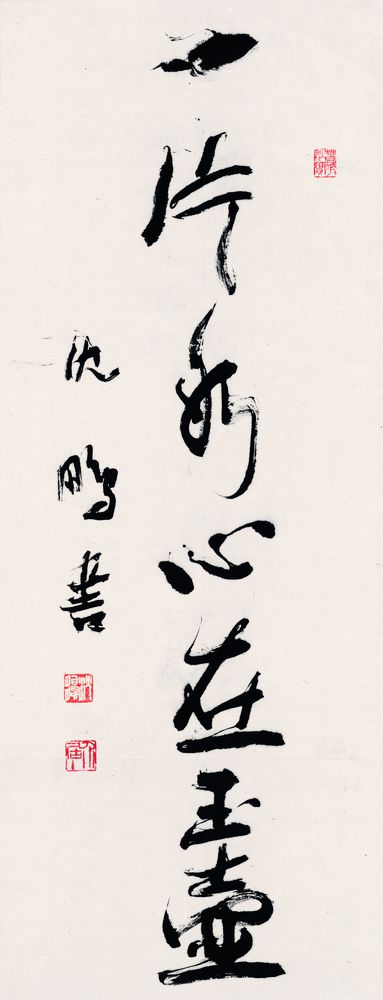 一片冰心在玉壶
沈鹏书